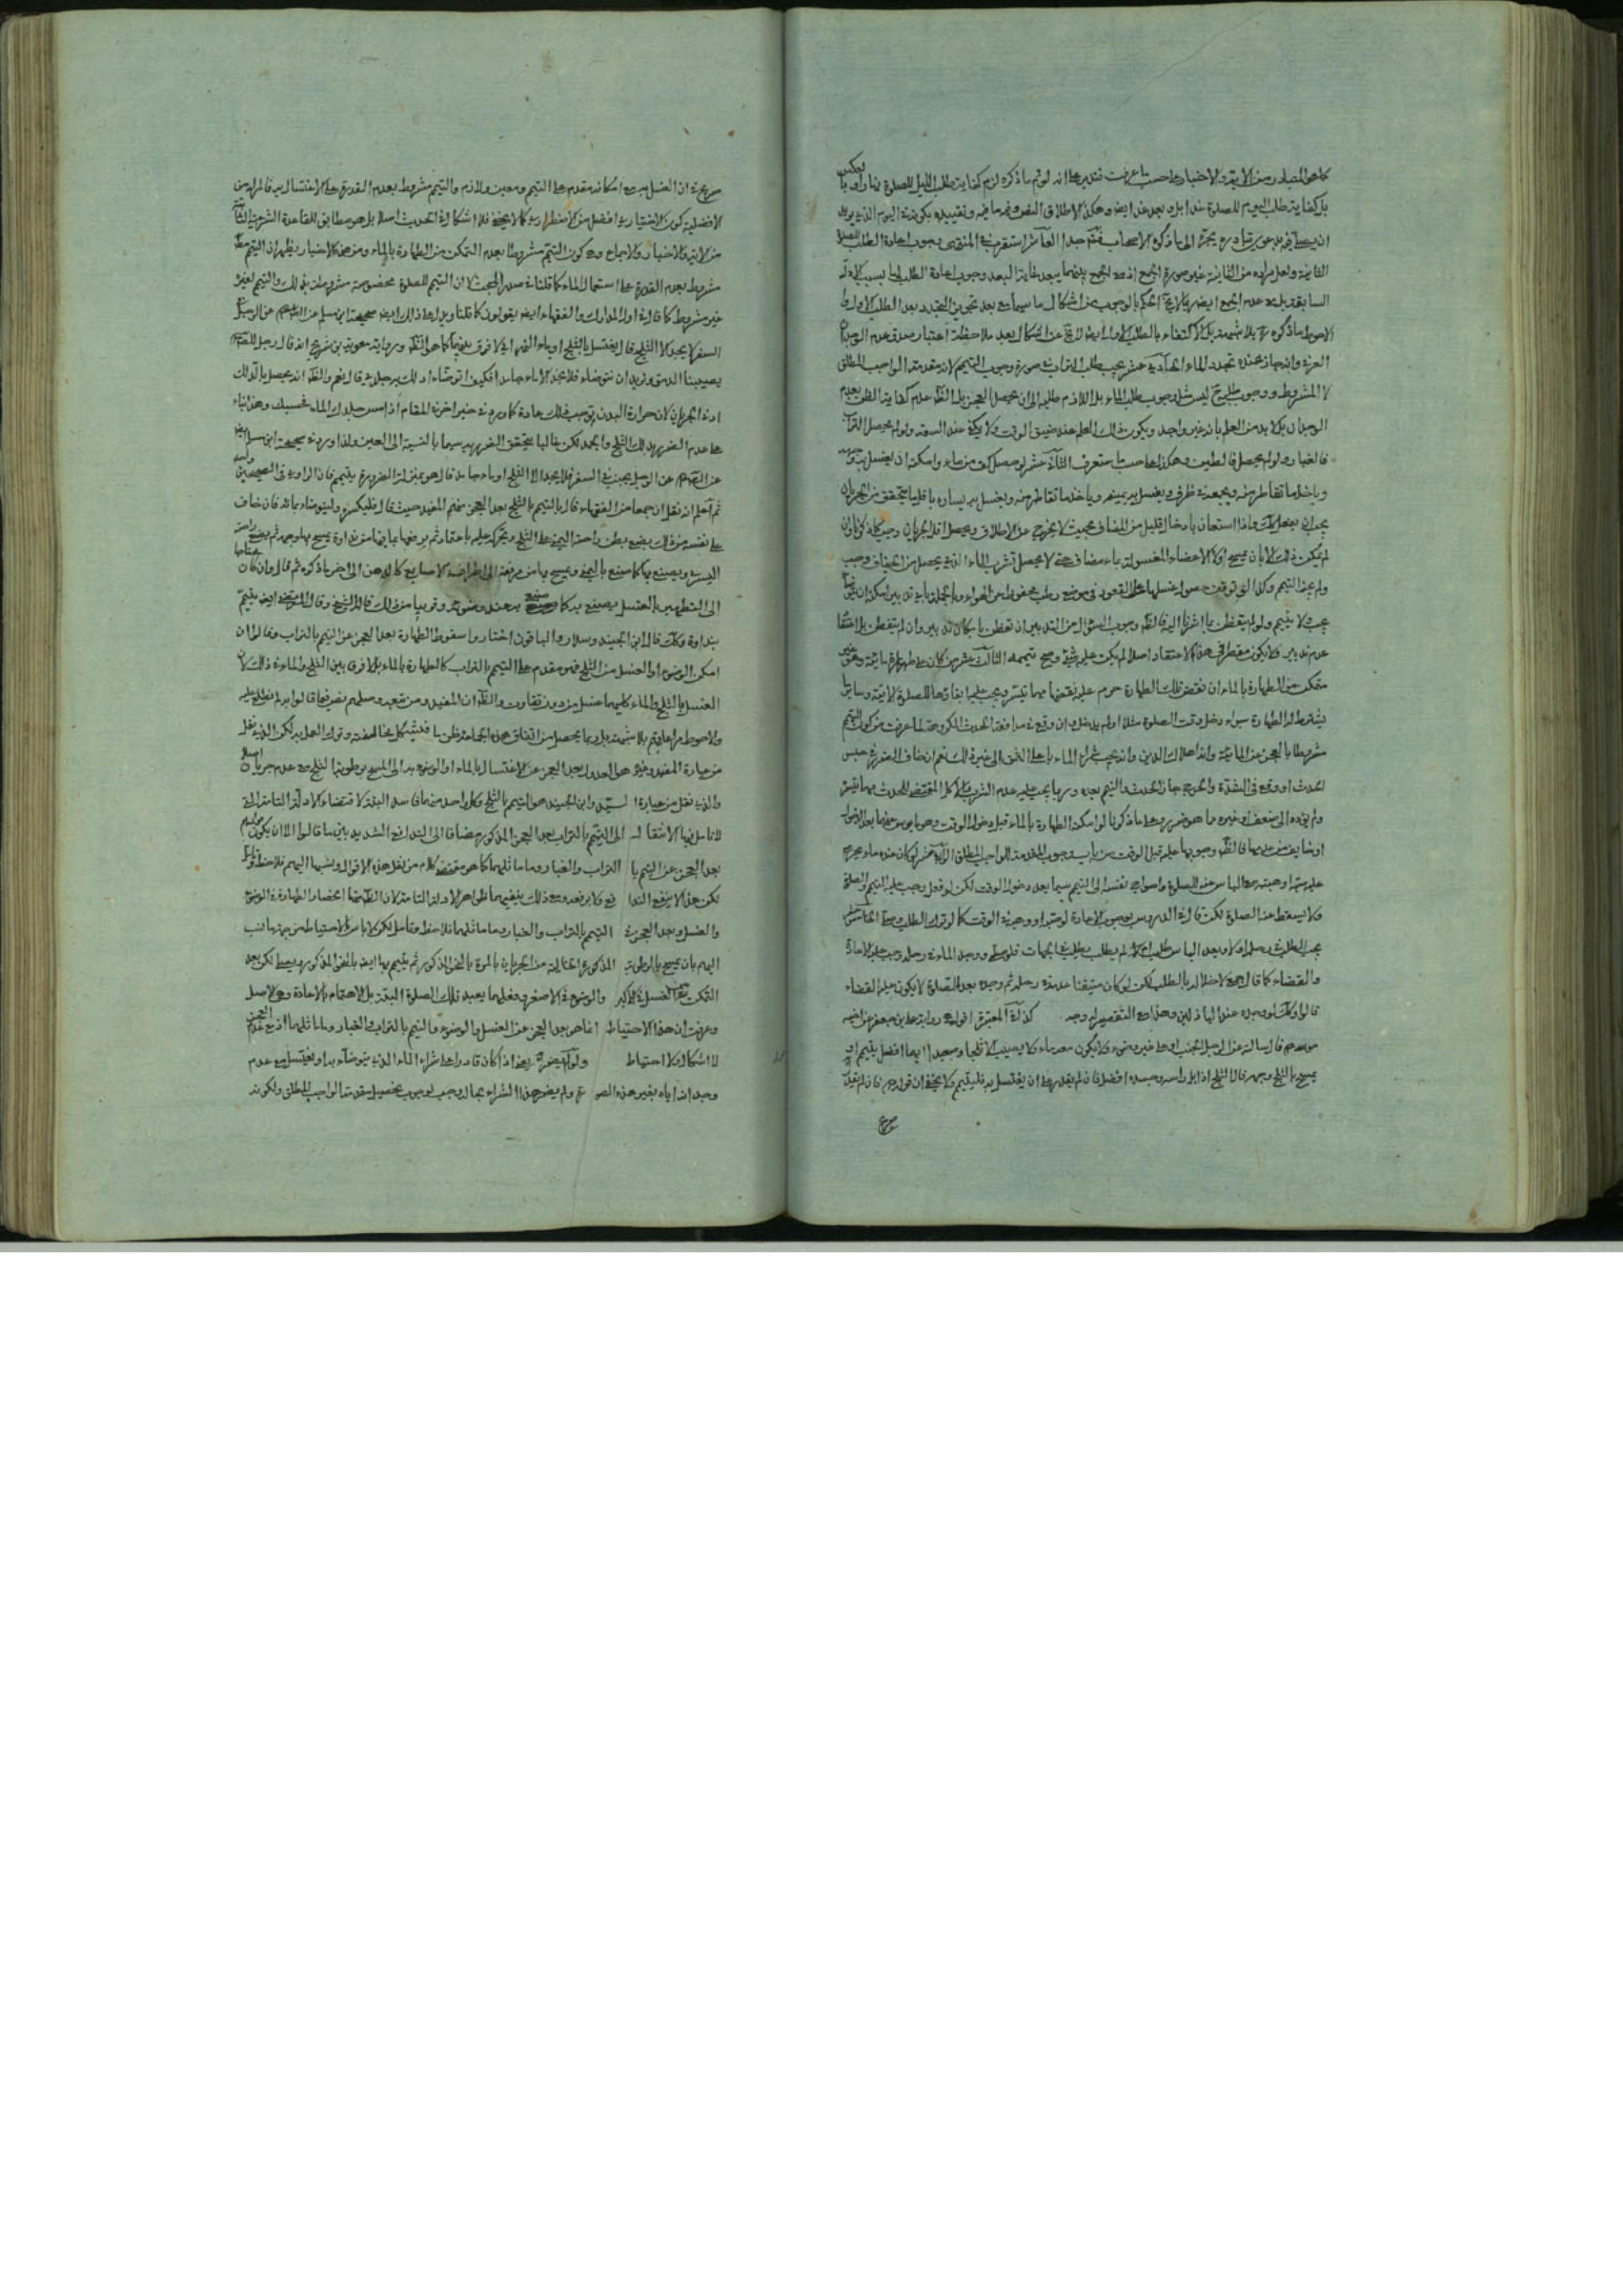 كما هو المتبادر من الآية والاخبار على حسب ما عرفت فتدبر على انه لو تم ما ذكره لزم كفاية طلب الليل للصلوة نهارا وبالعكس
بل كفاية طلب اليوم للصلوة غدا بل وبعد غد ايضا وهكذا لاطلاق النص وفيه ما فيه وتقييده بكونه في اليوم الذي يريد
ان يصلي فيه بدعوى تبادره يجر الى ما ذكره الاصحاب فتم جدا العاشر استقرب في المنتهى وجوب اعادة الطلب للصلوة
الثانية ولعل مراده من الثانية غير صورة الجمع اذ مع الجمع بينهما يبعد غاية البعد وجوب اعادة الطلب
السابقة بل مع عدم الجمع ايضا الحكم بالوجوب من اشكال ما سيما مع بعد تجويز التجدد بعد الطلب الاول
الاحوط ما ذكروه بلا شبهة بل الاكتفاء بالطلب الاول ايضا لا يخ عن اشكال بعد ملاحظة اعتبار صدق عدم الوجدان
وانه جاز عنده تجدد الماء الحادية عشر يجب طلب التراب في صورة وجوب التيمم لانه مقدمة الواجب المطلق
لا المشروط ووجوب طلبه ليس مثل وجوب طلب الماء بل اللازم طلبه الى ان يحصل العجز بل الظ عدم كفاية الظن بعدم
الوجدان بل لا بد من العلم بانه غير واجد ويكون ذلك العلم عند ضيق الوقت ولا يكفي عند السعة ولو لم يحصل التراب
فالغبار ولو لم يحصل فالطين وهكذا على حسب ما ستعرف الثاني عشر لو حصل كف من ماء وامكنه ان يغسل به وجهه
وياخذ ما تقاطر منه ويجمعه في ظرف ويغسل به يمينه وياخذ ما تقاطر منه ويغسل به يساره باقل ما يتحقق من الجريان
يجب ان يفعل ذلك واذا استعان بادخال قليل من المضاف بحيث لا يخرج عن الاطلاق ويحصل اقل الجريان وجب
لم يمكن ذلك الا بان يمسح اولا الاعضاء المغسولة بماء مضاف حتى لا يحصل تشرب الماء الذي يحصل من الجفاف وجب
ولم يجز التيمم وكذا لو توقف حصول غسلها على القعود في موضع رطب محفوظ من الهواء وبالجملة باي تدبير امكن ان يتوضأ
يجب ولا يتيمم ولو لم يتفطن بما اخرنا اليه فالظ وجوب السؤال من التدبير ان تفطن بامكان تدبير وان لم يتفطن بل اعتقد
عدم تدبير ولا يكون مقصرا في هذا الاعتقاد اصلا لم يكن عليه شيء وصح تيممه الثالث عشر من كان على طهارة مائية وهو غير
متمكن من الطهارة بالماء ان نقض تلك الطهارة حرم عليه نقضها مهما تيسر ويجب عليه ابقاؤها للصلوة الآتية وسائر ما
يشترط له الطهارة سواء دخل وقت الصلوة مثلا او لم يدخل وان وقع في مدافعة الحدث المكروهة لما عرفت من كون التيمم
مشروطا بالعجز عن المائية وانه احلال الدين وانه يجب شراء الماء باعلى الثمن الى غير ذلك نعم ان خاف الضرر في حبس
الحدث او وقع في الشدة والحرج جاز الحدث والتيمم بعده وربما يجب عليه عدم الشرب والاكل المقتضي للحدث مهما تيسر
ولم يؤده الى ضعف او غيره مما هو ضرر وعلى ما ذكرنا لو امكنه الطهارة بالماء قبل دخول الوقت وهو مايوس عنها بعد الدخول
او خائف من عدمها فالظ وجوبها عليه قبل الوقت من باب وجوب المقدمة للواجب المطلق الرابع عشر لو كان عنده ماء يحرم
عليه بيعه او هبته مع الياس عنه للصلوة واحواج نفسه الى التيمم سيما بعد دخول الوقت لكن لو فعل وجب عليه التيمم والصلوة
ولا يسقط عنه الصلوة لكن قال في الدروس بوجوب الاعادة لو صلى ووجد في الوقت كما لو ترك الطلب وصلى الخامس عشر
يجب الطلب في رحله اولا وبعد الياس طلب والا لم يطلب الجهات فلو صلى ووجد الماء في رحله وجب عليه الاعادة
والقضاء كما قال جمع لاخلاله بالطلب لكن لو كان متيقنا عدمه في رحله ثم وجده بعد الصلوة لا يكون عليه القضاء
قالوا وكذا لو وجده عند الباذلين وهذا مع التقصير له وجه كذلة المعتبرة اقول هي رواية علي بن جعفر عن اخيه
موسى ع قال سالته عن الرجل الجنب او على غير وضوء ولا يكون معه ماء ولا يصيب الا ثلجا وصعيدا ايهما افضل يتيمم او
يمسح بالثلج وجهه قال الثلج اذا بل راسه وجسده افضل فان لم يقدر على ان يغتسل به فليتيمم ولا يخفى ان قوله ع فان لم يقدر
صريح
صريح في ان الغسل به مع امكانه مقدم على التيمم ومعين ولازم والتيمم مشروط بعدم القدرة على الاغتسال به فالمراد من
الافضلية كون الاختياري افضل من الاضطراري كما لا يخفى فلا اشكال في الحديث اصلا بل هو مطابق للقاعدة الشرعية الثابتة
من الآية والاخبار والاجماع وهي كون التيمم مشروطا بعدم التمكن من الطهارة بالماء ومن هذه الاخبار يظهر ان التيمم مطلقا
مشروط بعدم القدرة على استعمال الماء كما قلنا في صدر المبحث لا ان التيمم للصلوة مخصوصة مشروط بذلك والتيمم لغيره
غير مشروط كما قال في اول المدارك والفقهاء ايضا يقولون كما قلنا ويدل على ذلك ايضا صحيحة ابن مسلم عن الصادق ع عن الرجل في
السفر لا يجد الا الثلج قال يغتسل بالثلج او ماء النهر اي لا فرق بينهما كما هو الظ ورواية معوية بن شريح انه قال رجل للصادق ع
يصيبنا الدمق ونريد ان نتوضاء فلا نجد الا ماء جامدا فكيف اتوضاء ادلك به جلدي قال نعم والظ انه يحصل بالدلك
ادنى الجريان لان حرارة البدن توجب ذلك عادة كما ورد في خبر اخر في المقام اذا مس جلدك الماء فحسبك وهذا بناء
على عدم الضرر بدلك الثلج والجمد لكن غالبا يتحقق الضرر به سيما بالنسبة الى العين ولذا ورد في صحيحة ابن مسلم ايضا
عن الصادق ع عن الرجل يجنب في السفر فلا يجد الا الثلج او ماء جامدا قال هو بمنزلة الضرورة يتيمم فان الراوي في الصحيحين واحد
ثم اعلم انه نقل ان جمعا من الفقهاء قال بالتيمم بالثلج بعد العجز منهم المفيد حيث قال فليكسره وليتوضاء بمائه فان خاف
على نفسه من ذلك يضع بطن راحته اليمنى على الثلج ويحركها عليه باعتماد ثم يرفعها بما فيها من نداوة يمسح بها وجهه ثم يضع راحته
اليسرى ويصنع بها كما صنع باليمنى ويمسح بها من مرفقه الى اطراف الاصابع كالدهن الى اخر ما ذكره ثم قال وان كان محتاجا
الى التطهير بالغسل يصنع به كما صنع به عند وضوئه وقريبا من ذلك قال الشيخ وقال المرتضى ايضا يتيمم
بنداوة وكذا قال ابن الجنيد وسلار والباقون اختاروا سقوط الطهارة بعد العجز عن التيمم بالتراب وقالوا ان
امكن الوضوء او الغسل من الثلج فهو مقدم على التيمم بالتراب كالطهارة بالماء بلا فرق بين الثلج والماء في ذلك لان
الغسل بالثلج والماء كليهما غسل من دون تفاوت والظ ان المفيد ومن تبعه وسلم بصرفها قالوا به
والاحوط مراعاتهم بلا شبهة بل ربما يحصل من اتفاق هؤلاء الجماعة ظن ما فيشكل مخالفته وترك العمل به لكن الذي نقل
من عبارة المفيد وغيره هو العدول بعد العجز عن الاغتسال بالماء او الوضوء به الى المسح برطوبة الثلج مع عدم جريان اصلا
والذي نقل من عبارة السيد وابن الجنيد هو التيمم بالثلج وكل واحد منهما فاسد البتة لاقتضاء الادلة التامة التي
لا تامل فيها الانتقال الى التيمم بالتراب بعد العجز المذكور مضافا الى التدافع الشديد بين ما قالوا الا ان يكون مرادهم
بعد العجز عن التيمم بالتراب والغبار وما ماثلهما كما هو مقتضى كلام من نقل هذه الاقوال ونسبها اليهم فلاحظ وتامل
لكن هذا لا يرفع التدافع ولا يرفعه ومع ذلك ينفيهما ظواهر الادلة التامة لان الظ منها انحصار الطهارة في الوضوء
والغسل وبعد العجز في التيمم بالتراب والغبار وما ماثلهما فلاحظ وتامل لكن لا باس بالاحتياط من جهة ما نسب
اليهم بان يمسح بالرطوبة المذكورة الخالية من الجريان بالمرة بالنحو المذكور ثم يتيمم بها ايضا بالنحو المذكور ويصلي لكن بعد
التمكن من الغسل في الاكبر والوضوء في الاصغر وفعلهما يعيد تلك الصلوة البتة بل الاهتمام بالاعادة وهي الاصل
وعرفت ان هذا الاحتياط انما هو بعد العجز عن الغسل والوضوء والتيمم بالتراب والغبار وما ماثلهما اذ مع عدم العجز
لا اشكال ولا احتياط ولو بعوض يعني اذا كان قادرا على شراء الماء الذي يتوضاء به او يغتسل مع عدم
وجدانه اياه بغير هذه الصورة ولم يضره هذا الشراء بحاله وجب لوجوب تحصيل مقدمة الواجب المطلق ولكونه